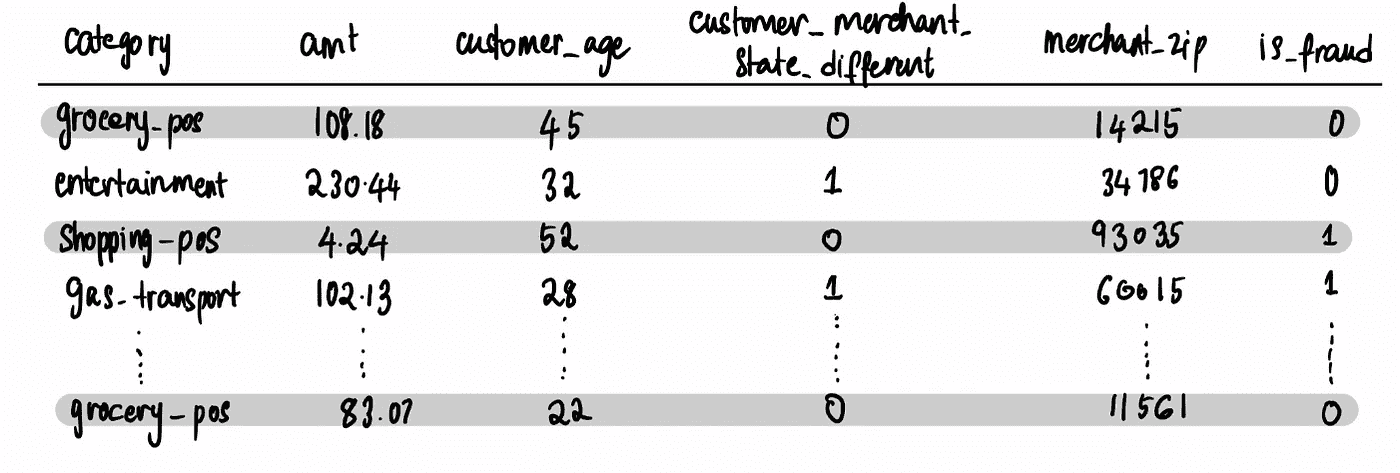 category amt customer_age customer_merchant_ state_different merchant_zip is_fraud
grocery_pos 108.18 45 0 14215 0
entertainment 230.44 32 1 34786 0
shopping_pos 4.24 52 0 93035 1
gas_transport 102.13 28 1 60015 1
grocery_pos 83.07 22 0 11561 0